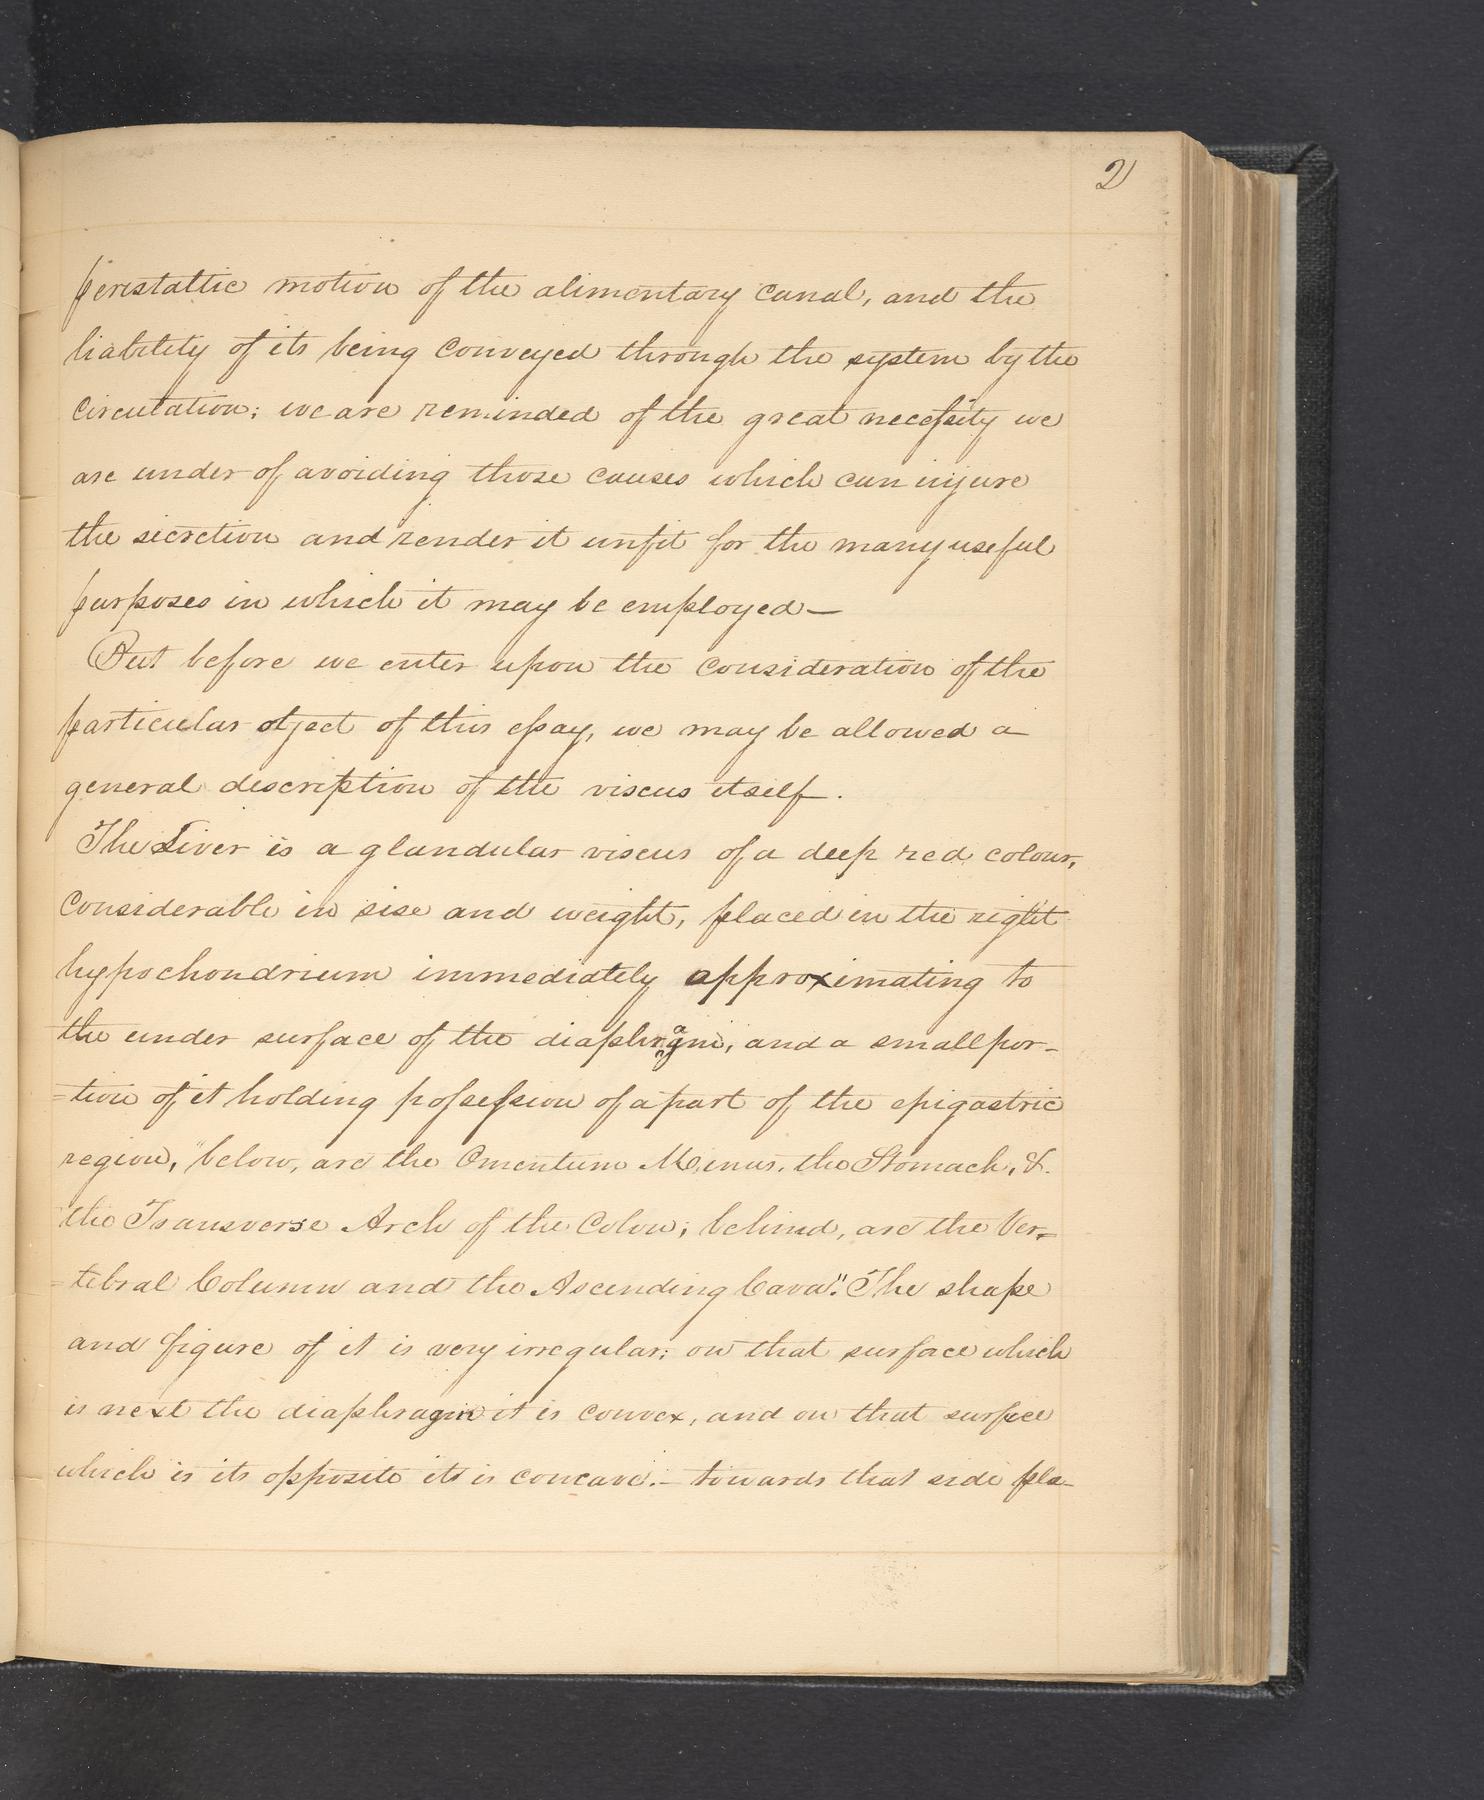 2
peristaltic motion of the alimentary canal, and the
liability of its being conveyed through the system by the
circulation; we are reminded of the great necessity we
are under of avoiding those causes which can injure
the secretion and render it unfit for the many useful
purposes in which it may be employed—
But before we enter upon the consideration of the
particular object of this essay, we may be allowed a
general description of the viscus itself.
The Liver is a glandular viscus of a deep red colour,
considerable in sise and weight, placed in the right
hypochondrium immediately approximating to
the under surface of the diaphragm, and a small por-
=tion of it holding possession of a part of the epigastric
region, "below, are the Omentum Minus, the Stomach, &.
the Transverse Arch of the Colon; behind, are the Ver=
=tebral Column and the Ascending Cava". The shape
and figure of it is very irregular; on that surface which
is next the diaphragm it is convex, and on that surface
which is its opposite it is concave.— towards that side pla-